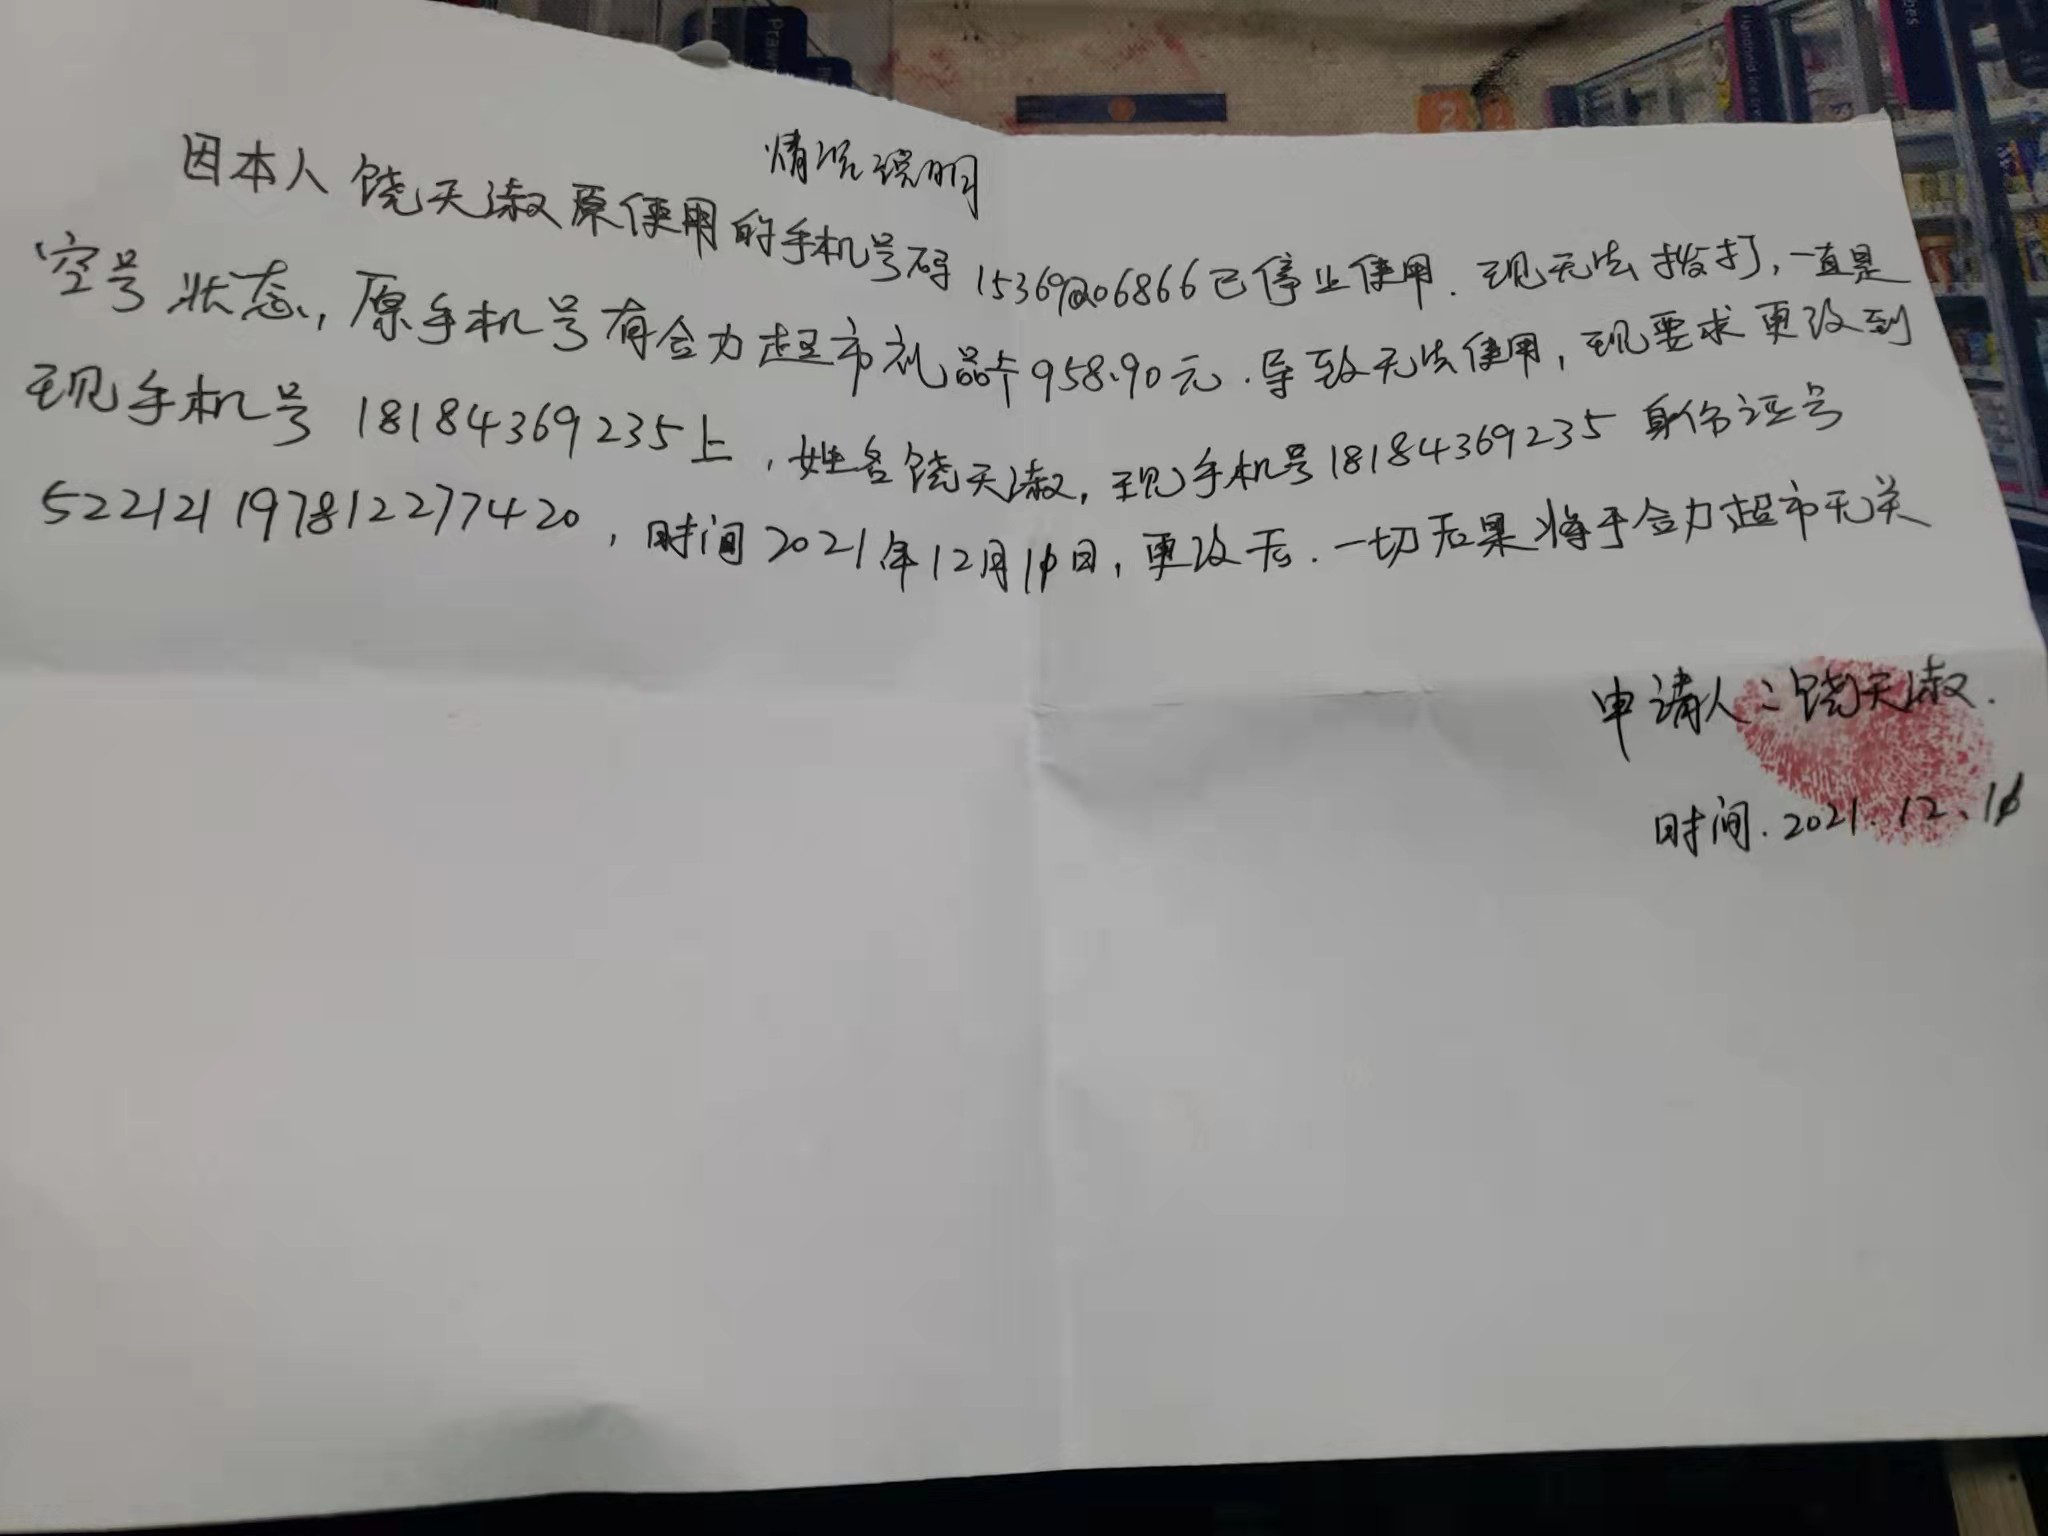 情况说明
因本人饶天淑原使用的手机号码15369206866已停止使用.现无法拨打,一直是
空号状态,原手机号有合力超市礼品卡958.90元.导致无法使用,现要求更改到
现手机号18184369235上,姓名饶天淑,现手机号18184369235身份证号
522121197812277420,时间2021年12月10日,更改后.一切后果将于合力超市无关
申请人:饶天淑.
时间.2021.12.10